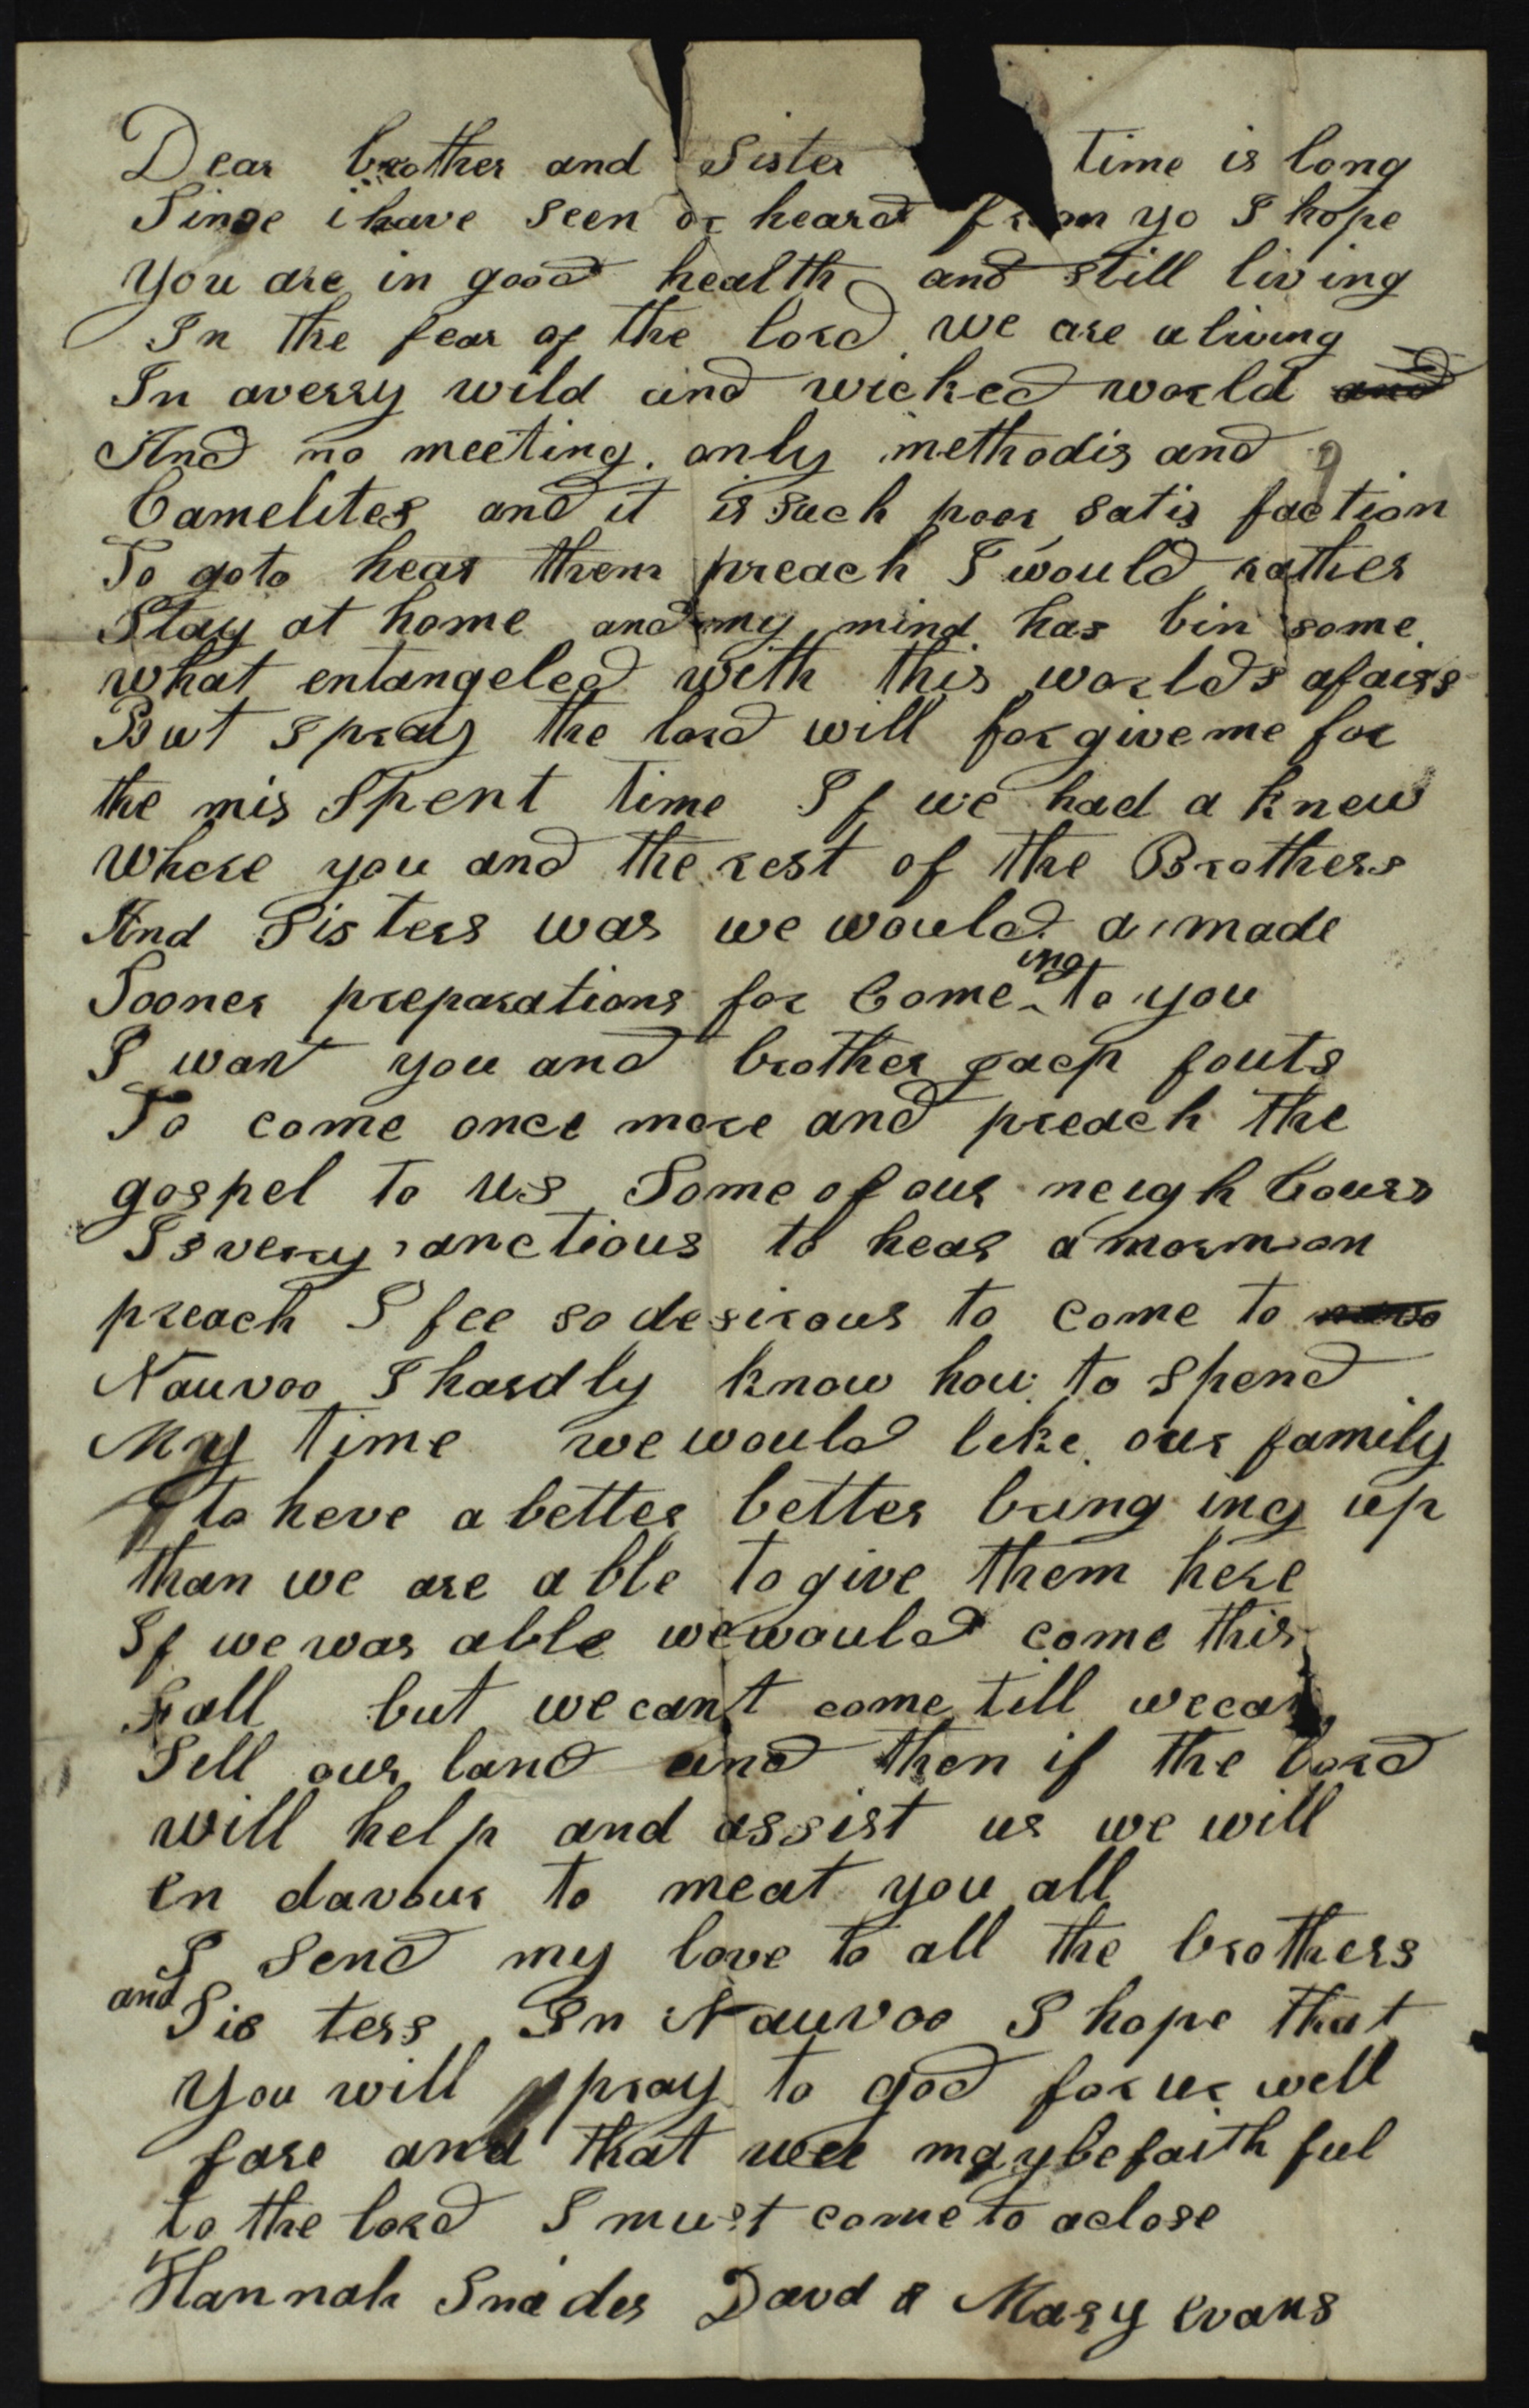 Dear brother and Sister time is long
Since i have seen or heard from yo I hope
you are in good health and still living
In the fear of the lord we are a living
In a verry wild and wicked world and
And no meeting only methodis and
Camelites and it is Such poor satis faction
To go to hear them preach I would rather
Stay at home and my mind has bin some
what entangeled with this worlds afairs
But I pray the lord will forgive me for
the mis Spent time If we had a knew
where you and the rest of the Brothers
And Sisters was we would a made
Sooner preparations for Come ing to you
I want you and brother Jacp fouts
To come once more and preach the
gospel to us Some of our neigh bours
Is very anctious to hear a mormon
preach I fee so desirous to come to
Nauvoo I hardly know how to spend
My time we would like our family
to heve a better better bring ing up
than we are able to give them here
If we was able we would come this
Fall but we cant come till we can
Sell our land and then if the lord
will help and assist us we will
en davour to meat you all
I Send my love to all the brothers
and Sis ters In Nauvoo I hope that
you will pray to god for ur well
fare and that wee may be faith ful
to the lord I must come to a close
Hannah Snider Davd & Mary Evans